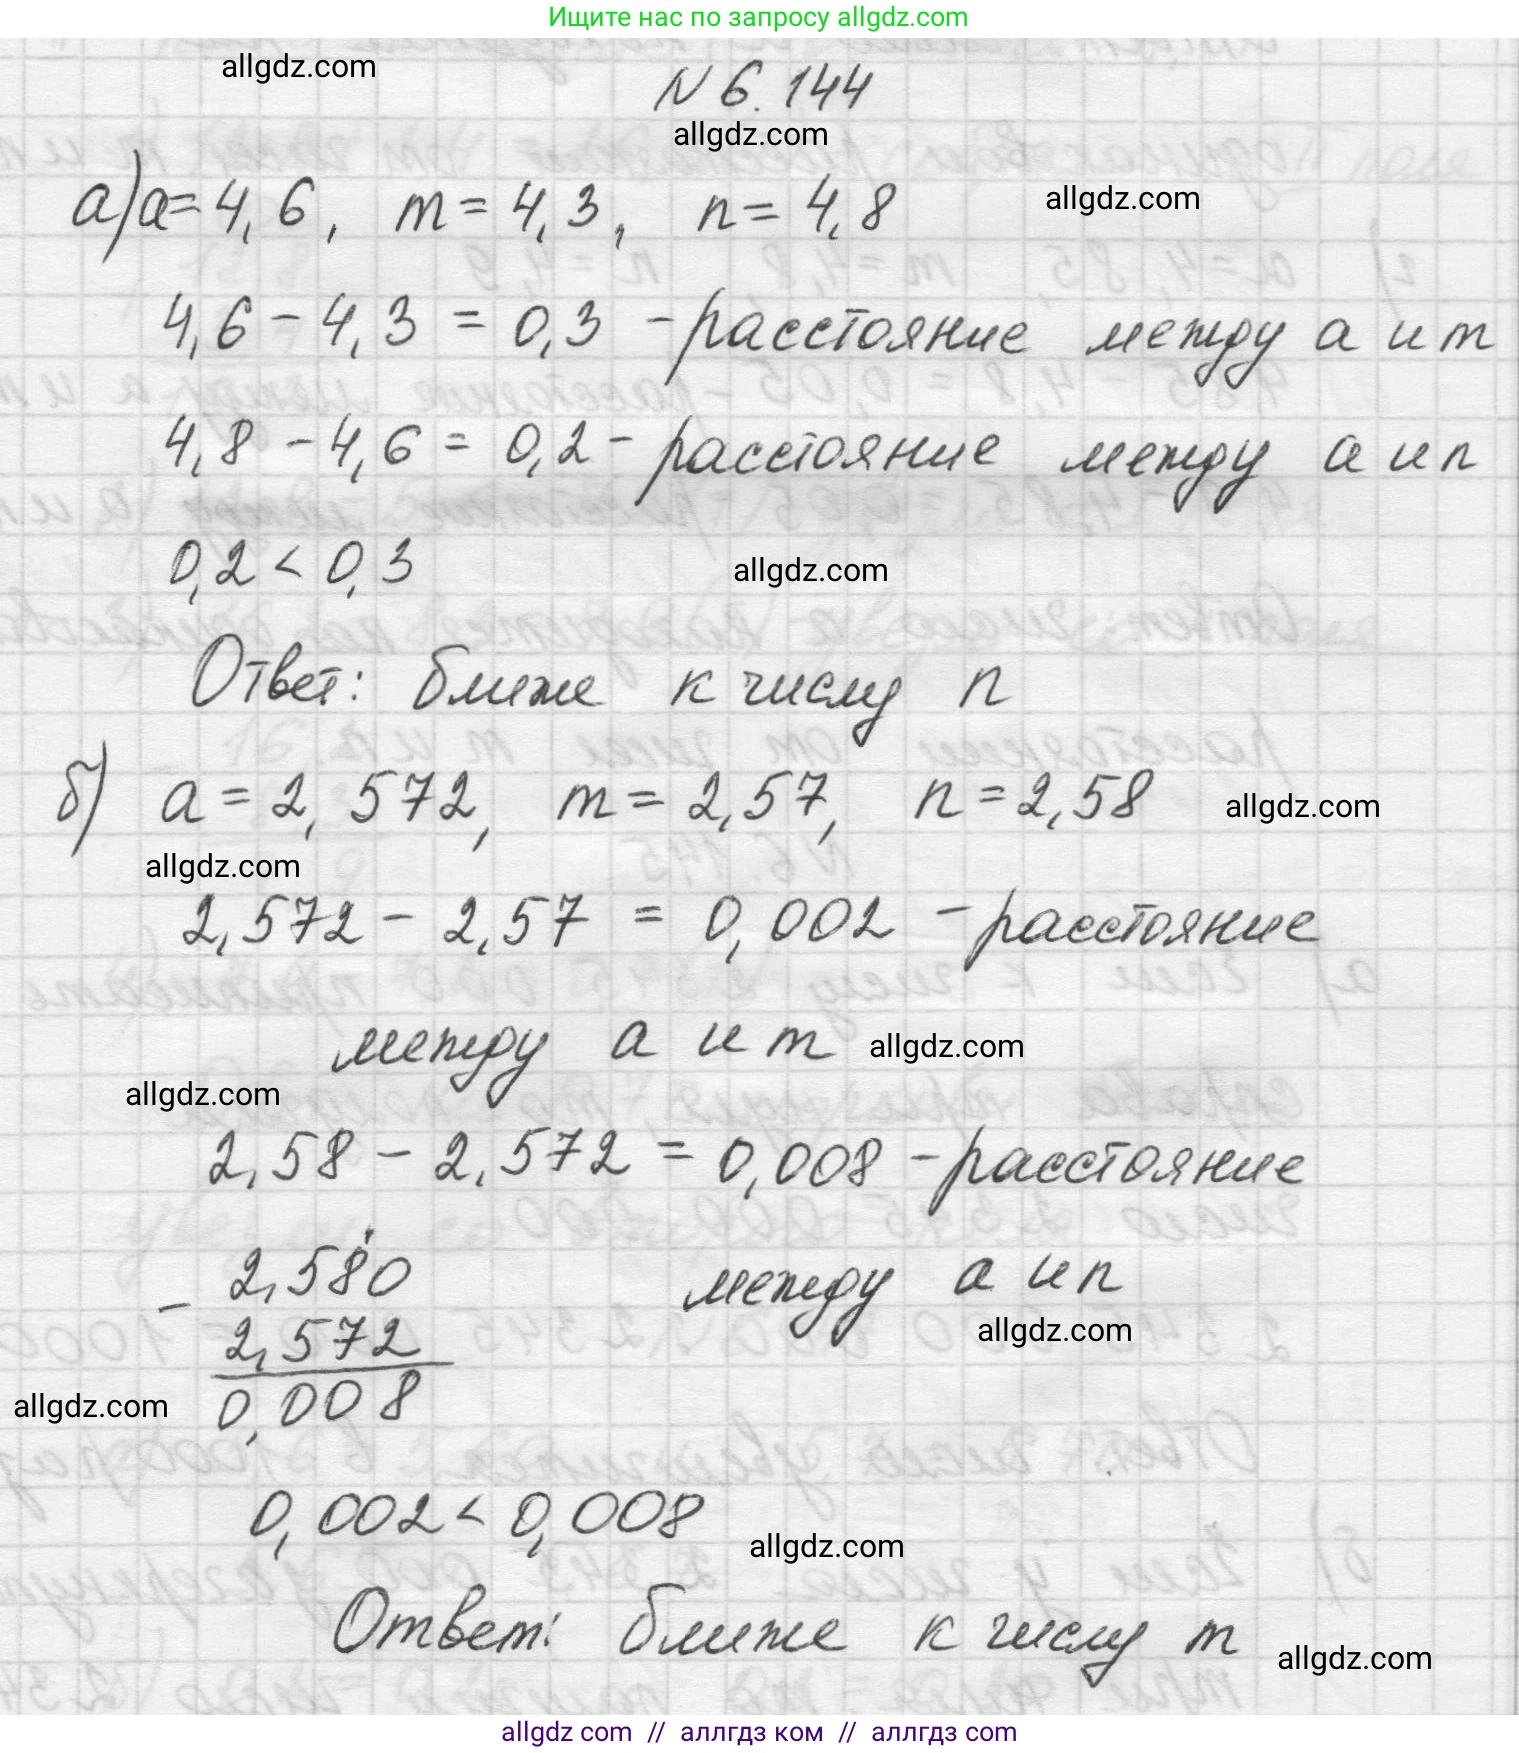 Ищите нас по запросу allgdz.com
allgdz.com
N 6.144
allgdz.com
а) a=4,6, m=4,3, n=4,8
allgdz.com
4,6-4,3=0,3 - расстояние между a и m
4,8-4,6=0,2 - расстояние между a и n
0,2<0,3
allgdz.com
Ответ: ближе к числу n
б) a=2,572, m=2,57, n=2,58
allgdz.com
allgdz.com
2,572-2,57=0,002 - расстояние
между a и m
allgdz.com
allgdz.com
2,58-2,572=0,008 - расстояние
между a и n
allgdz.com
- 2,580
2,572
0,008
allgdz.com
0,002<0,008
allgdz.com
Ответ: ближе к числу m
allgdz.com
allgdz com // аллгдз ком // аллгдз com